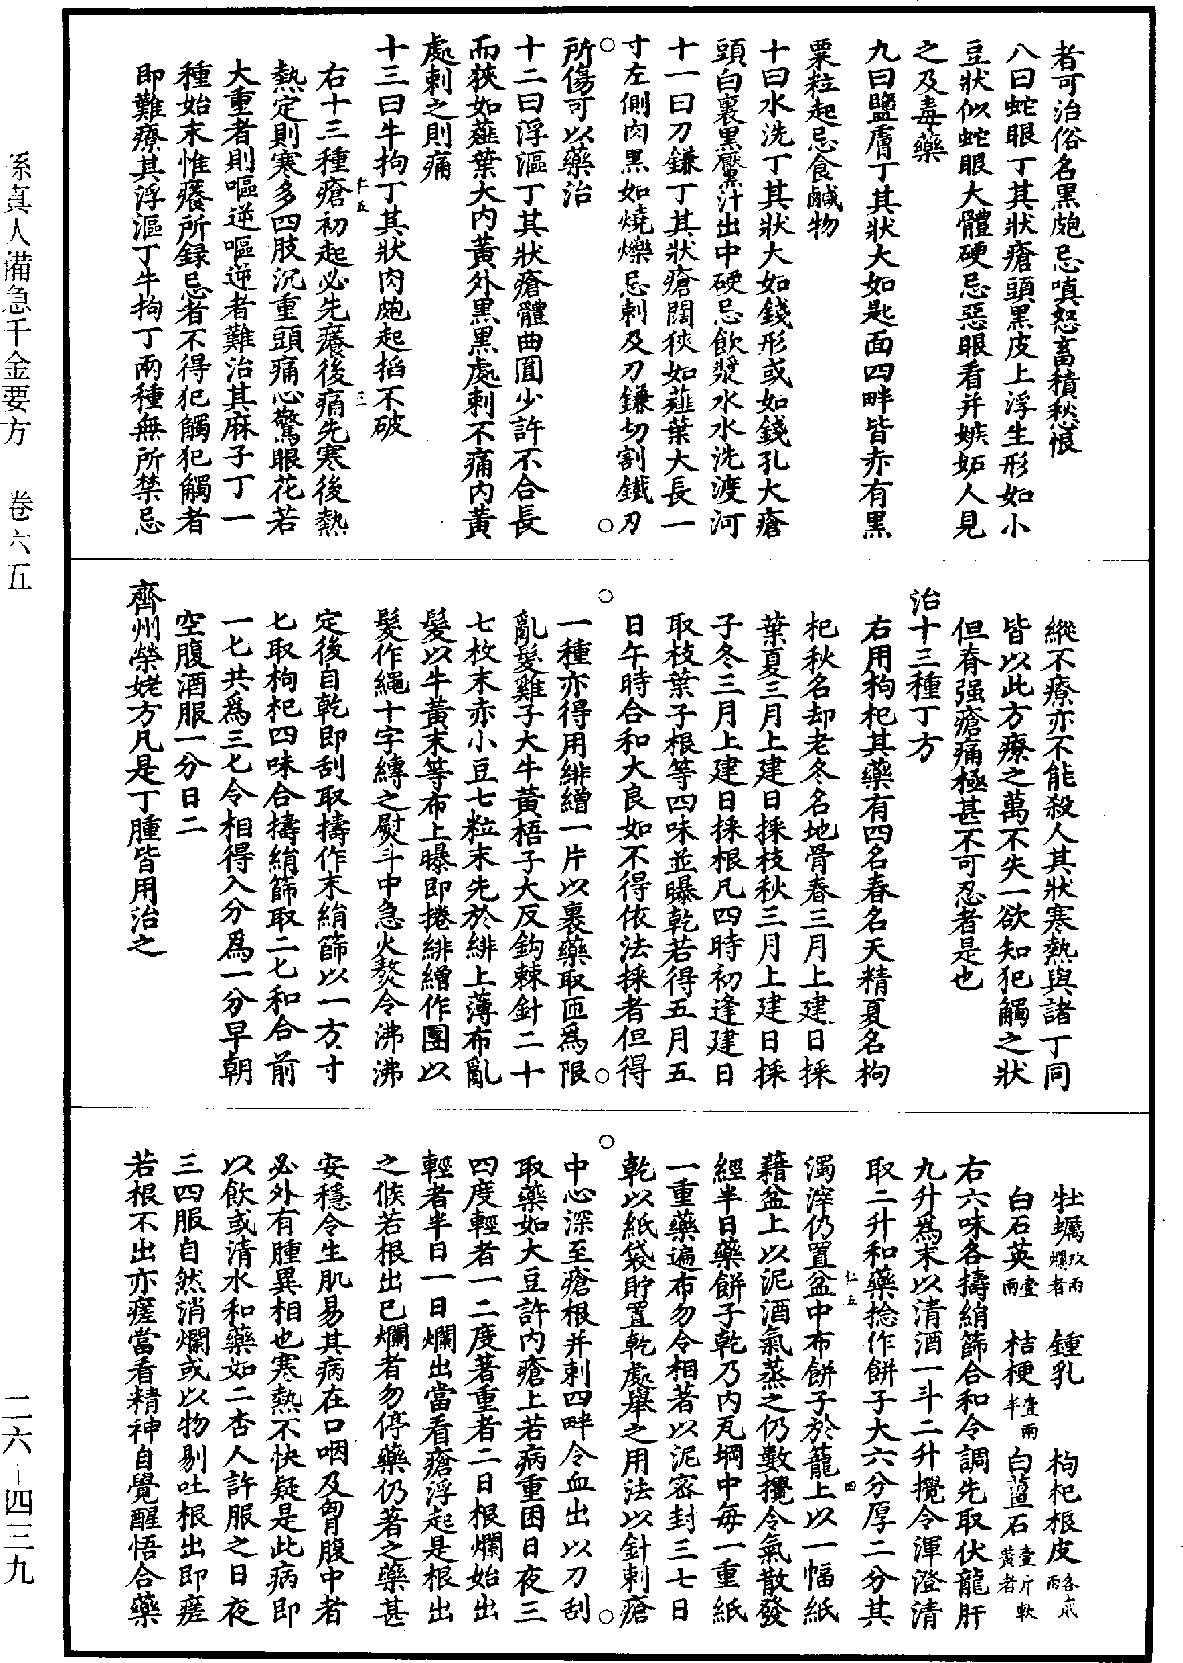 者可治俗名黑皰忌嗔怒畜積愁恨
八曰蛇眼丁其狀瘡頭黑皮上浮生形如小
豆狀似蛇眼大體硬忌惡眼看并嫉妬人見
之及毒藥
九曰鹽膚丁其狀大如匙面四畔皆赤有黑
粟粒起忌食鹹物
十曰水洗丁其狀大如錢形或如錢孔大瘡
頭白裏黑黶汁出中硬忌飲漿水水洗渡河
十一曰刀鎌丁其狀瘡闊狹如薤葉大長一
寸左側肉黑如燒爍忌刺及刀鎌切割鐵刃
所傷可以藥治
十二曰浮漚丁其狀瘡體曲圓少許不合長
而狹如薤葉大內黃外黑黑處刺不痛內黃
處刺之則痛
十三曰牛拘丁其狀肉皰起掐不破
右十三種瘡初起必先癢後痛先寒後熱
熱定則寒多四肢沉重頭痛心驚眼花若
大重者則嘔逆嘔逆者難治其麻子丁一
種始末惟癢所録忌者不得犯觸犯觸者
即難療其浮漚丁牛拘丁兩種無所禁忌
縱不療亦不能殺人其狀寒熱與諸丁同
皆以此方療之萬不失一欲知犯觸之狀
但脊强瘡痛極甚不可忍者是也
治十三種丁方
右用枸杞其藥有四名春名天精夏名枸
杞秋名却老冬名地骨春三月上建日採
葉夏三月上建日採枝秋三月上建日採
子冬三月上建日採根凡四時初逢建日
取枝葉子根等四味並曝乾若得五月五
日午時合和大良如不得依法採者但得
一種亦得用緋繒一片以裹藥取匝爲限
亂髮雞子大牛黃梧子大反鈎棘針二十
七枚末赤小豆七粒末先於緋上薄布亂
髮以牛黃末等布上曝即捲緋繒作團以
髮作繩十字縛之熨斗中急火熬令沸沸
定後自乾即刮取擣作末絹篩以一方寸
匕取枸杞四味合擣絹篩取二匕和合前
一匕共爲三匕令相得入分爲一分早朝
空腹酒服一分日二
齊州榮姥方凡是丁腫皆用治之
牡蠣玖兩爛者 鍾乳 枸杞根皮各貳兩
白石英壹兩 桔梗壹兩半 白薑石壹斤軟黃者
右六味各擣絹篩合和令調先取伏龍肝
九升爲末以清酒一斗二升攪令渾澄清
取二升和藥捻作餅子大六分厚二分其
濁滓仍置盆中布餅子於籠上以一幅紙
藉盆上以泥酒氣蒸之仍數攪令氣散發
經半日藥餅子乾乃內瓦堈中每一重紙
一重藥遍布勿令相著以泥密封三七日
乾以紙袋貯置乾處舉之用法以針刺瘡
中心深至瘡根并刺四畔令血出以刀刮
取藥如大豆許內瘡上若病重困日夜三
四度輕者一二度著重者二日根爛始出
輕者半日一日爛出當看瘡浮起是根出
之候若根出已爛者勿停藥仍著之藥甚
安穩令生肌易其病在口咽及胷腹中者
必外有腫異相也寒熱不快疑是此病即
以飲或清水和藥如二杏人許服之日夜
三四服自然消爛或以物剔吐根出即瘥
若根不出亦瘥當看精神自覺醒悟合藥
孫真人備急千金要方　卷六五
二六－四三九